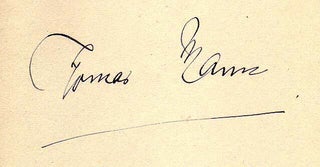 Tomas Mann